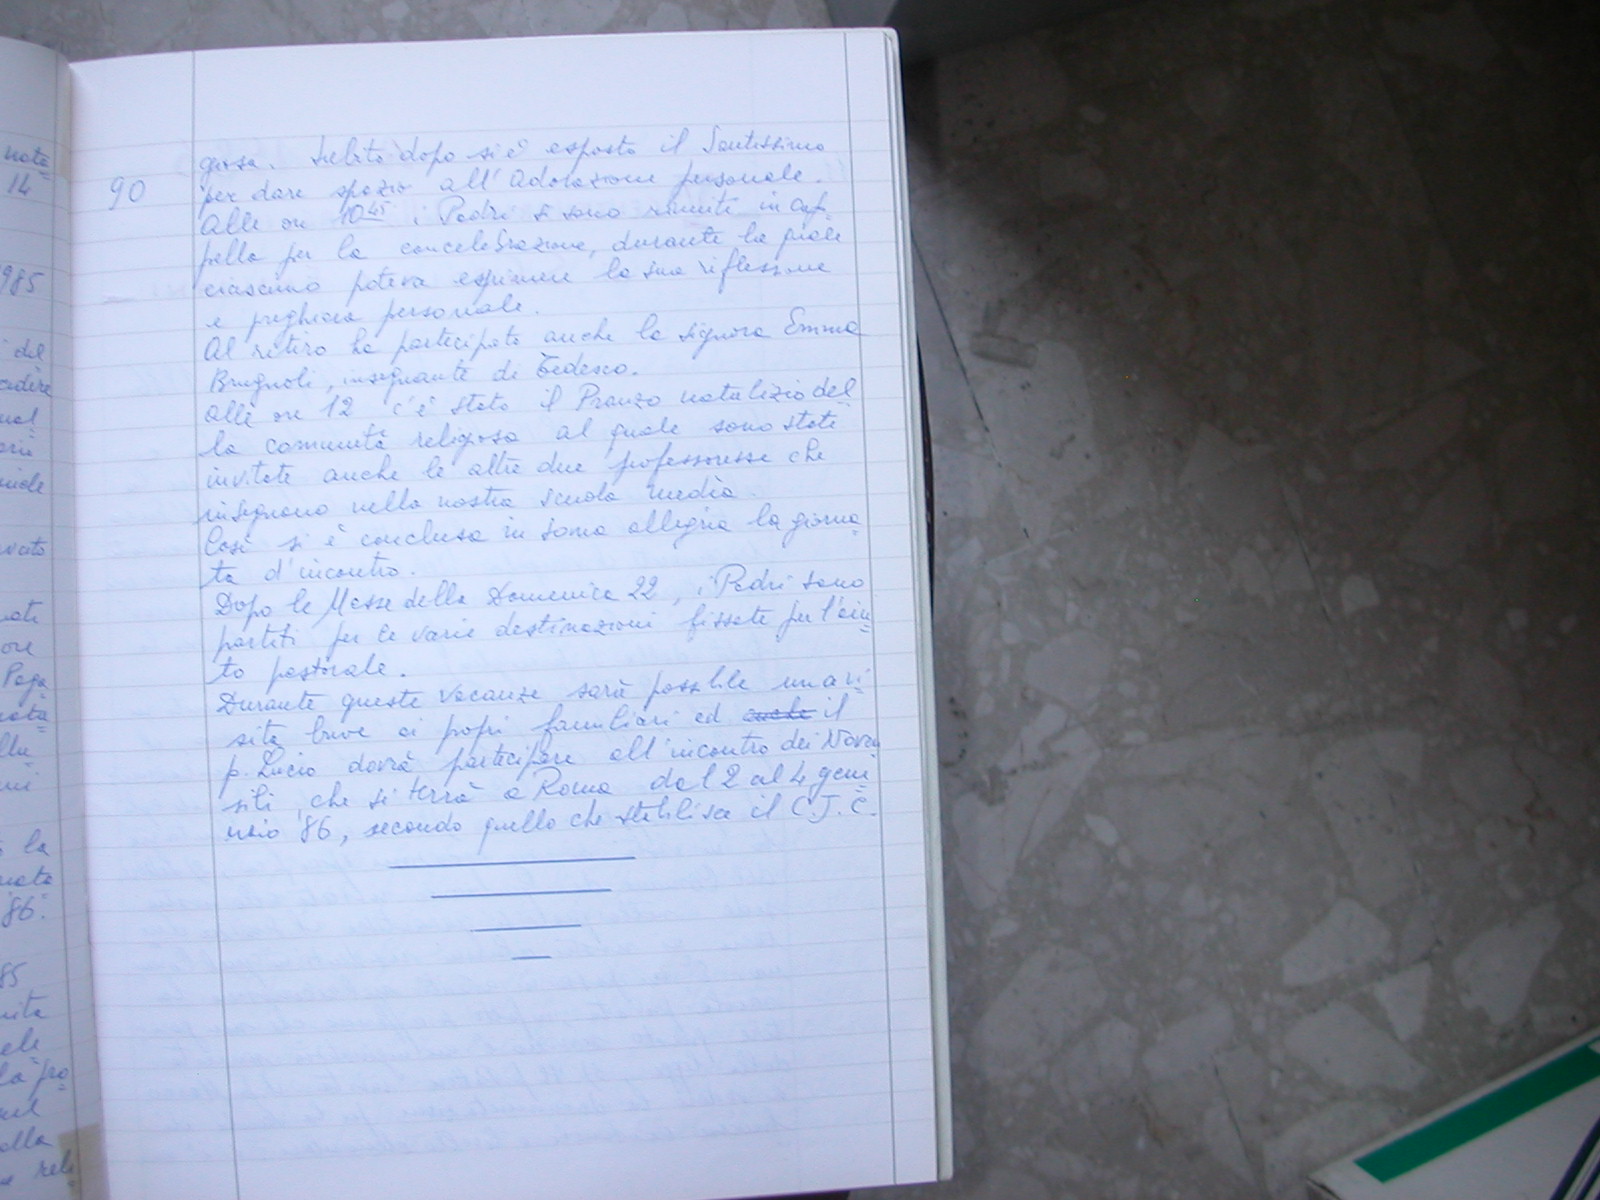 nata
14
1985
del
86.
85
la pro
rele
90
giosa. Subito dopo si è esposto il Santissimo
per dare spazio all'Adorazione personale.
Alle ore 10.45 i Padri si sono riuniti in cap=
pella per la concelebrazione, durante la quale
ciascuno poteva esprimere la sua riflessione
e preghiera personale.
Al ritiro ha partecipato anche la signora Emma
Brugnoli, insegnante di Tedesco.
Alle ore 12 c'è stato il Pranzo natalizio del=
la comunità religiosa al quale sono state
invitate anche le altre due professoresse che
insegnano nella nostra scuola media.
Così si è conclusa in soma allegria la giorna=
ta d'incontro.
Dopo le Messe della Domenica 22, i Padri sono
partiti per le varie destinazioni fissate per l'aiu=
to pastorale.
Durante queste vacanze sarà possibile una vi=
sita breve ai propri familiari ed anche il
p. Lucio dovrà partecipare all'incontro dei Noven
sili, che si terrà a Roma dal 2 al 4 gen=
naio '86, secondo quello che stabilisce il C.J.C.